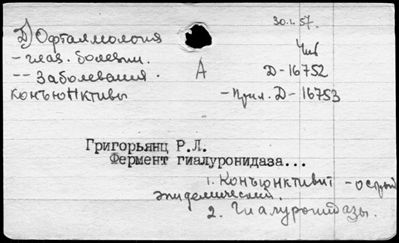 30.I.57.
2) Офталмология
- глаз. болезни.
Чив
-- Заболевания.
А
Д-16752
конъюнктивы
- Прил. Д-16753
Григорьянц Р.Л.
Фермент гиалуронидаза...
1. Конъюнктивит - острый
эпидемический.
2. Гиалуронидазы.